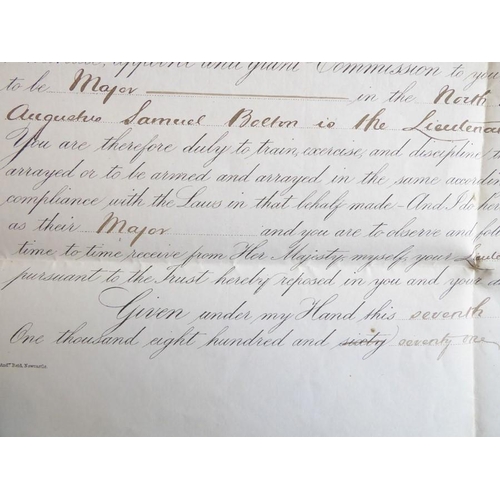 appoint and grant Commission to you
to be Major in the North
Augustus Samuel Bolton is the Lieutenan
You are therefore duly to train, exercise, and discipline t
arrayed or to be armed and arrayed, in the same accordin
compliance with the Laws in that behalf made - And I do he
as their Major and you are to observe and foll
time to time, receive from Her Majesty, myself, your Lieute
pursuant to the Trust hereby reposed in you and your d
Given under my Hand this seventh
One thousand eight hundred and sixty seventy one
Reid, Newcastle.